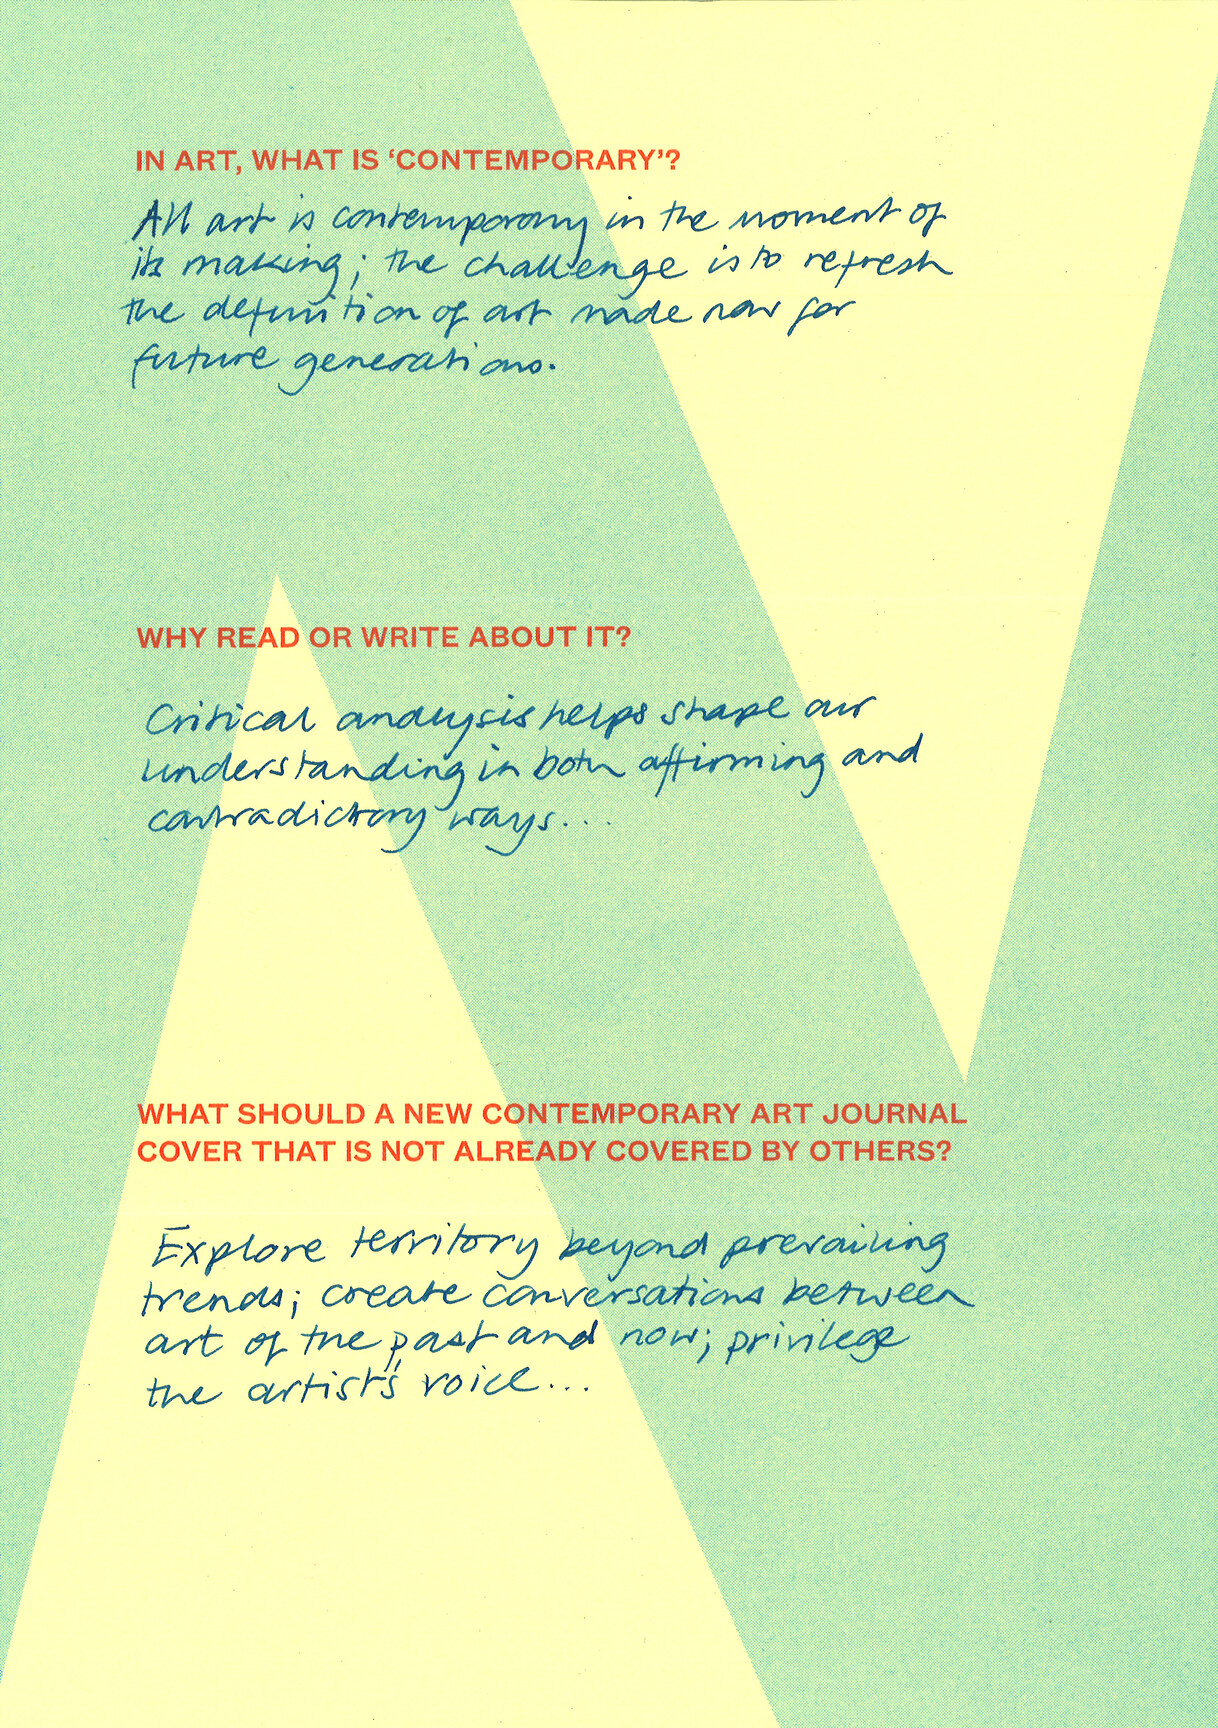 IN ART, WHAT IS ‘CONTEMPORARY’?
All art is contemporary in the moment of
its making; the challenge is to refresh
the definition of art made now for
future generations.
WHY READ OR WRITE ABOUT IT?
Critical analysis helps shape our
understanding in both affirming and
contradictory ways...
WHAT SHOULD A NEW CONTEMPORARY ART JOURNAL
COVER THAT IS NOT ALREADY COVERED BY OTHERS?
Explore territory beyond prevailing
trends; create conversations between
art of the past and now; privilege
the artist's voice...